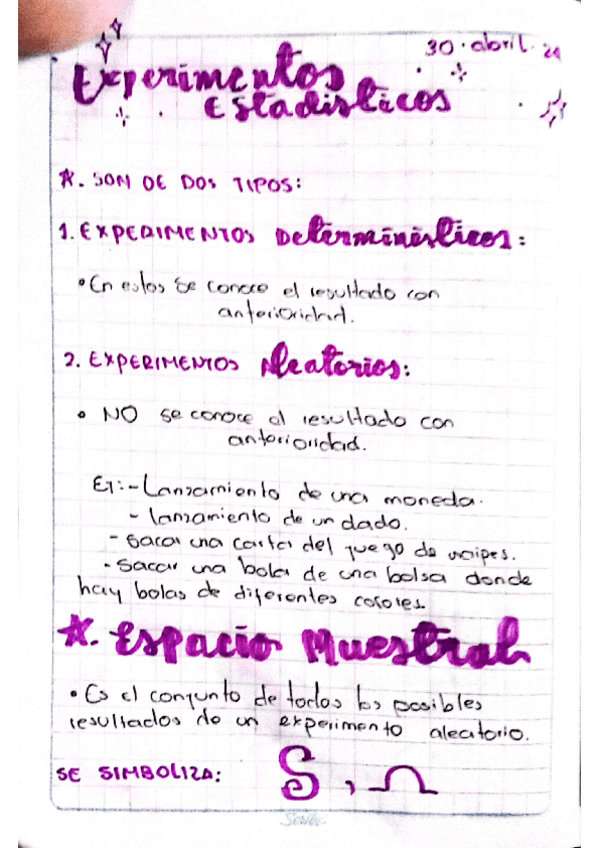 30 · abril · 21
Experimentos
Estadísticos
☆. SON DE DOS TIPOS:
1. EXPERIMENTOS Determinísticos:
• En estos se conoce el resultado con
anterioridad.
2. EXPERIMENTOS Aleatorios:
• NO se conoce el resultado con
anterioridad.
EJ:- Lanzamiento de una moneda.
- lanzamiento de un dado.
- sacar una carta del juego de naipes.
- Sacar una bola de una bolsa donde
hay bolas de diferentes colores.
☆. Espacio Muestral
• Es el conjunto de todos los posibles
resultados de un experimento aleatorio.
SE SIMBOLIZA: S , Ω
Scribe